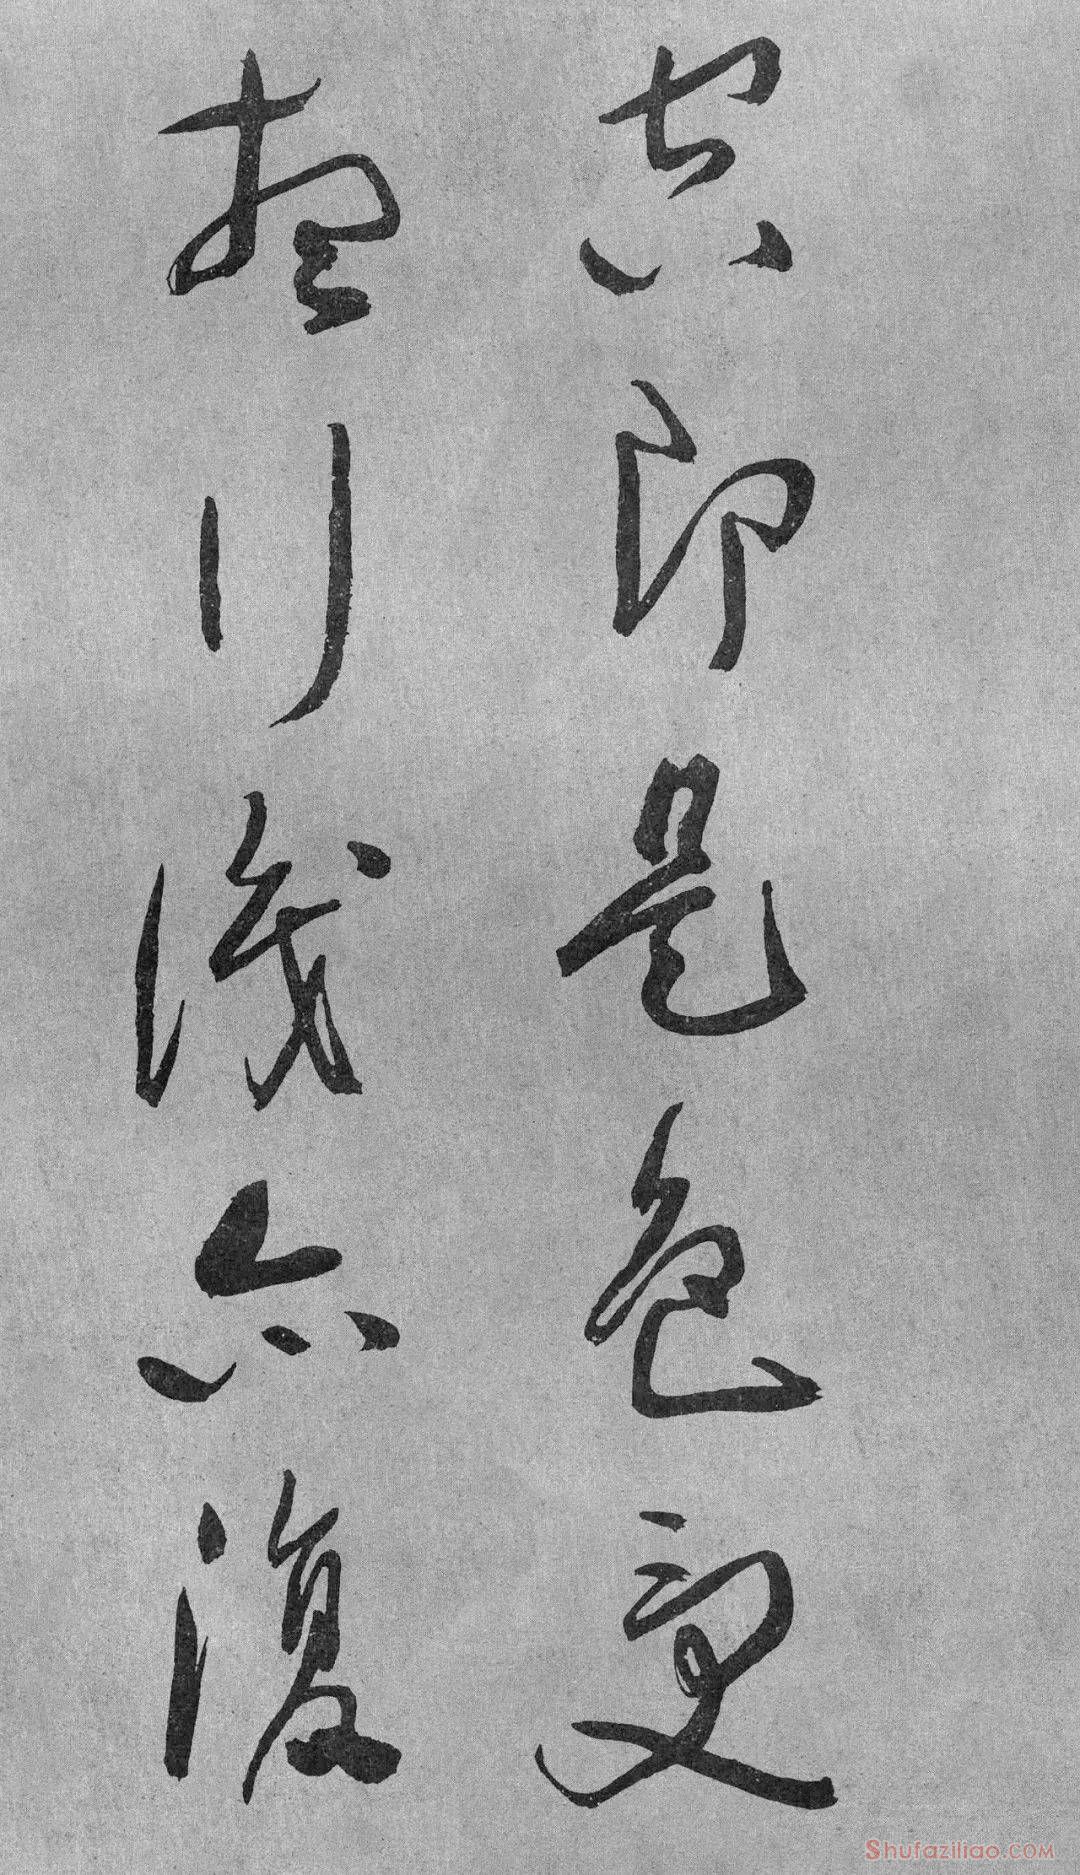 空即是色受
想行識亦復
Shufaziliao.COM